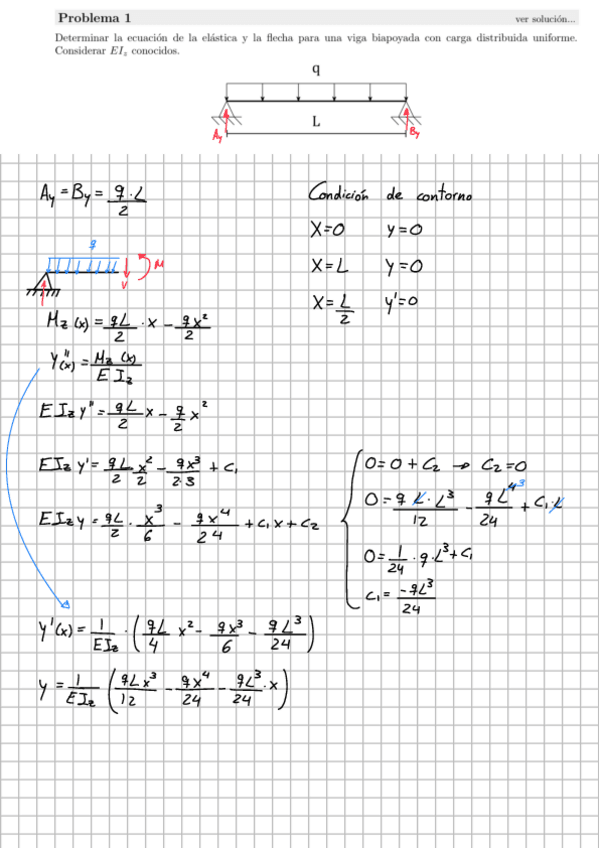 Problema 1
ver solución...
Determinar la ecuación de la elástica y la flecha para una viga biapoyada con carga distribuida uniforme.
Considerar EI_z conocidos.
q
L
A_y
B_y
A_y = B_y = q·L/2
Condición de contorno
X=0 y=0
X=L y=0
X=L/2 y'=0
q
M
V
M_z(x) = qL/2 · x - qx²/2
y''(x) = M_z(x)/EI_z
EI_z y'' = qL/2 x - q/2 x²
EI_z y' = qL/2 x²/2 - qx³/2·3 + C₁
EI_z y = qL/2 · x³/6 - qx⁴/24 + C₁x + C₂
0 = 0 + C₂ → C₂=0
0 = q L·L³/12 - qL⁴³/24 + C₁·L
0 = 1/24 · q·L³ + C₁
C₁ = -qL³/24
y'(x) = 1/EI_z · (qL/4 x² - qx³/6 - qL³/24)
y = 1/EI_z (qLx³/12 - qx⁴/24 - qL³/24 · x)